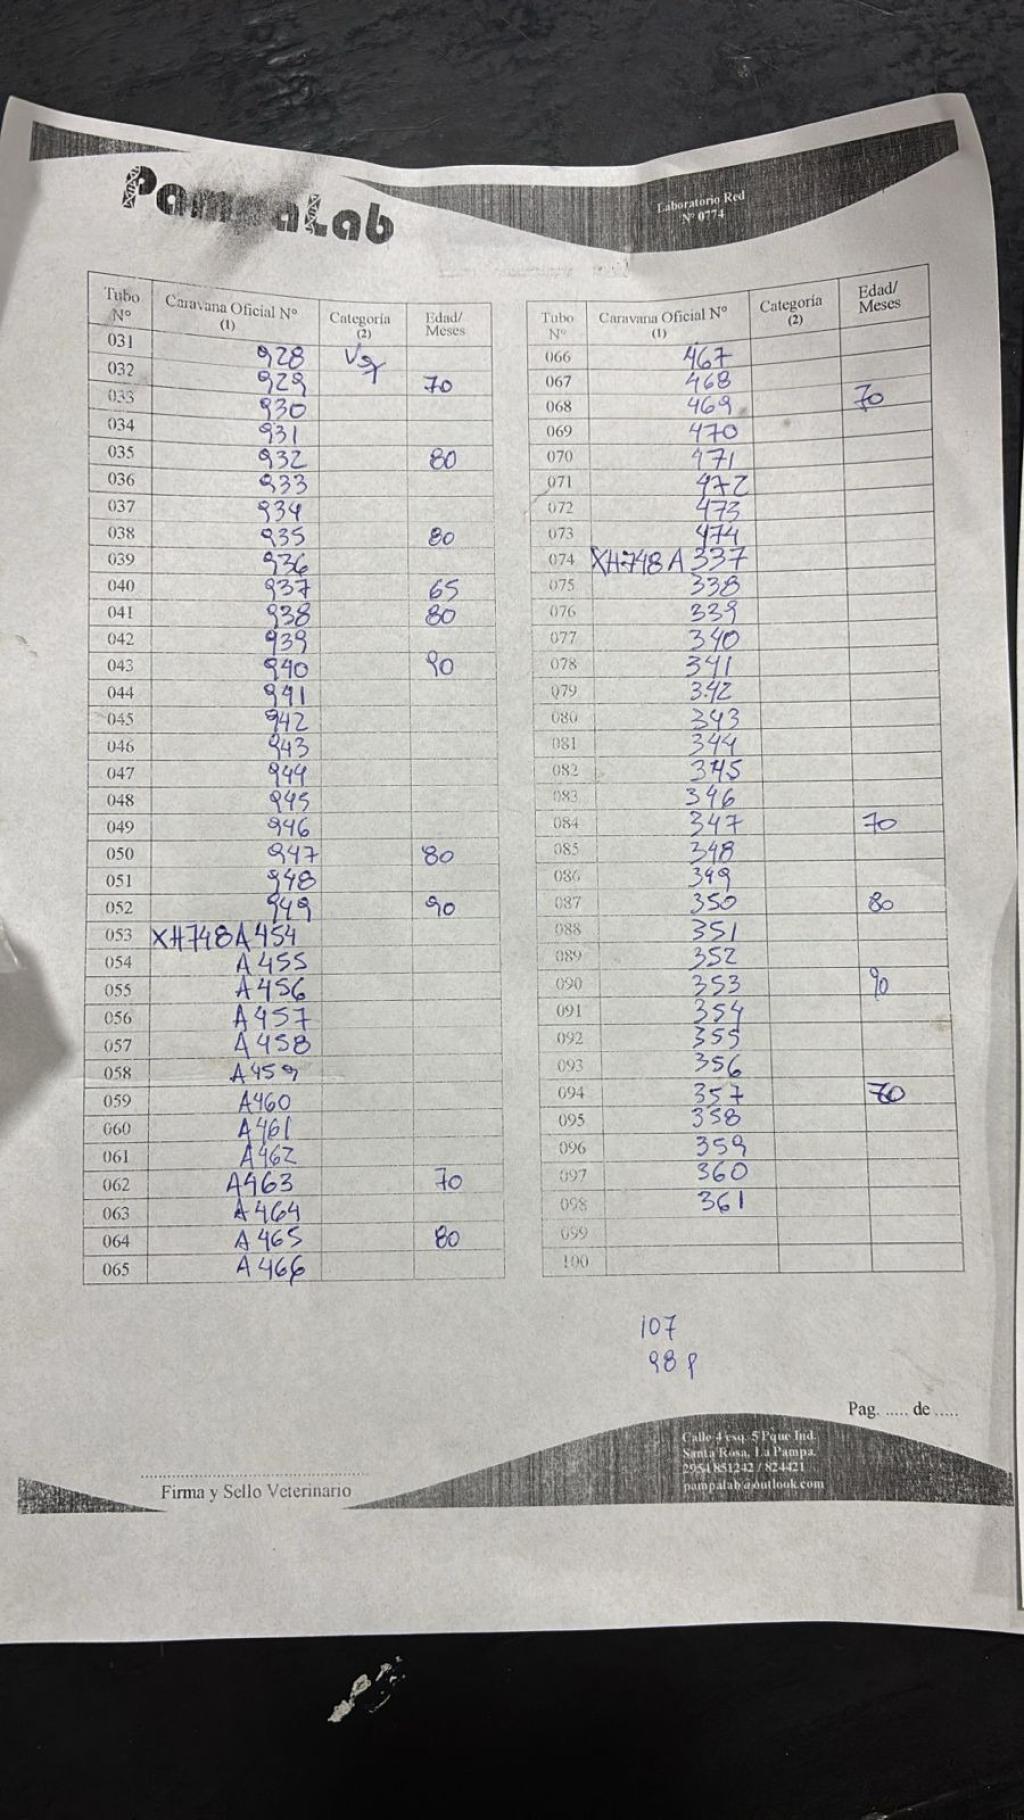 PampaLab
Laboratorio Red
Nº 0774
Tubo Nº Caravana Oficial Nº (1) Categoría (2) Edad/Meses
031 928 Vq
032 929 70
033 930
034 931
035 932 80
036 933
037 934
038 935 80
039 936
040 937 65
041 938 80
042 939
043 940 90
044 941
045 942
046 943
047 944
048 945
049 946
050 947 80
051 948
052 949 90
053 XH748A454
054 A455
055 A456
056 A457
057 A458
058 A459
059 A460
060 A461
061 A462
062 A463 70
063 A464
064 A465 80
065 A466
Tubo Nº Caravana Oficial Nº (1) Categoría (2) Edad/Meses
066 467
067 468
068 469 70
069 470
070 471
071 472
072 473
073 474
074 XH748A337
075 338
076 339
077 340
078 341
079 342
080 343
081 344
082 345
083 346
084 347 70
085 348
086 349
087 350 80
088 351
089 352
090 353 90
091 354
092 355
093 356
094 357 70
095 358
096 359
097 360
098 361
099
100
107
98 P
Pag. ..... de .....
Firma y Sello Veterinario
Calle 4 esq. 5 Pque Ind.
Santa Rosa, La Pampa.
2954 851242 / 824421
pampalab@outlook.com